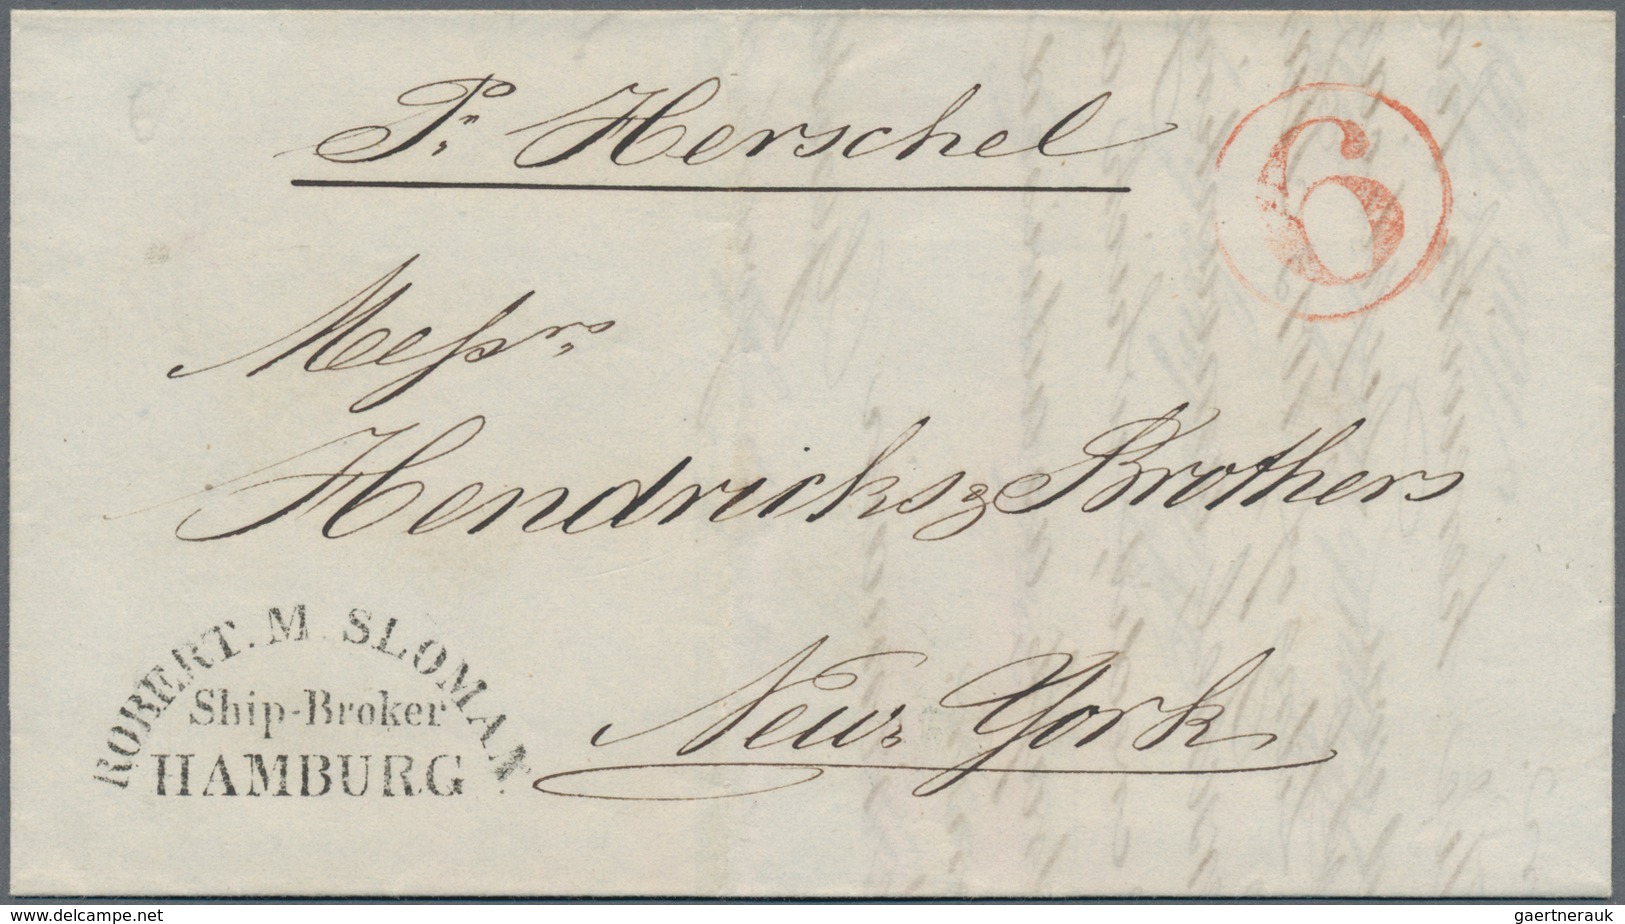 Pr. Herschel
6
Messrs
Hendricks & Brothers
New York
ROBERT. M. SLOMAN
Ship-Broker
HAMBURG
www.delcampe.net
gaertnerauk